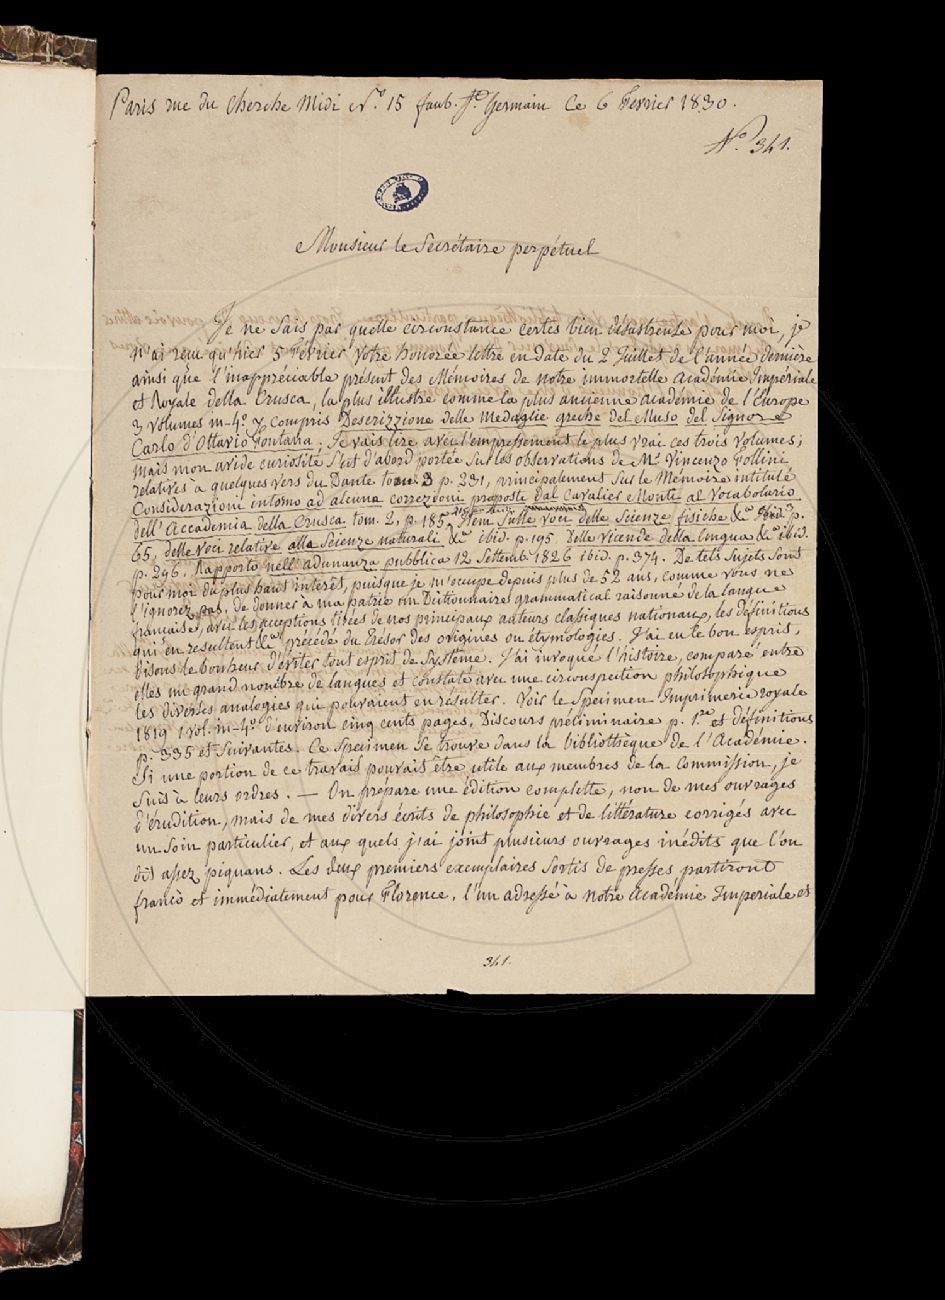 Paris rue du Cherche Midi N.° 15 faub. S.t Germain Ce 6 Fevrier 1830.
N.° 341.
Monsieur le Secrétaire perpétuel
Je ne sais par quelle circonstance certes bien désastreuse pour moi, je
n'ai reçu qu'hier 5 Fevrier votre honorée lettre en date du 2 Juillet de l'année dernière
ainsi que l'inappréciable présent des Mémoires de notre immortelle Académie Impériale
et Royale della Crusca, la plus illustre comme la plus ancienne académie de l'Europe
3 volumes in-4.° y compris Descrizzione delle Medaglie greche del Museo del Signor
Carlo d'Ottavio Fontana. Je vais lire avec l'empressement le plus vrai ces trois volumes;
mais mon avide curiosité s'est d'abord portée sur les observations de M.r Vincenzo Follini
relatives à quelques vers du Dante tom. 3 p. 231, principalement sur le Mémoire intitulé
Considerazioni intorno ad alcune correzzioni proposte dal Cavalier Monti al Vocabolario
dell' Accademia della Crusca tom. 2, p. 185, Item Sulle voci delle Scienze fisiche &a ibid. p.
65, delle voci relative alla Scienze naturali &a ibid. p. 195 Delle vicende della lingua &a ibid.
p. 296, Rapporto nell' adunanza pubblica 12 Settemb. 1826 ibid. p. 374. De tels sujets sont
pour moi du plus haut interêt, puisque je m'occupe depuis plus de 52 ans, comme vous ne
l'ignorez pas, de donner à ma patrie un Dictionnaire grammatical raisonné de la langue
française, avec les acceptions tirées de nos principaux auteurs classiques nationaux, les définitions
qui en resultent &a précédé du Trésor des origines ou étymologies. J'ai eu le bon esprit,
disons le bonheur d'éviter tout esprit de système. J'ai invoqué l'histoire, comparé entre
elles un grand nombre de langues et constaté avec une circonspection philosophique
les diverses analogies qui pouvaient en résulter. Voir le Specimen Imprimerie royale
1819 1 vol. in-4.° d'environ cinq cents pages, Discours préliminaire p. 1.re et définitions
p. 335 et suivantes. Ce specimen se trouve dans la bibliothèque de l'Académie.
Si une portion de ce travail pouvait être utile aux membres de la Commission, je
suis à leurs ordres. — On prépare une édition complette, non de mes ouvrages
d'érudition, mais de mes divers écrits de philosophie et de littérature corrigés avec
un soin particulier, et aux quels j'ai joint plusieurs ouvrages inédits que l'on
dit assez piquans. Les deux premiers exemplaires sortis de presses partiront
franco et immédiatement pour Florence, l'un adressé à notre Académie Imperiale et
341.